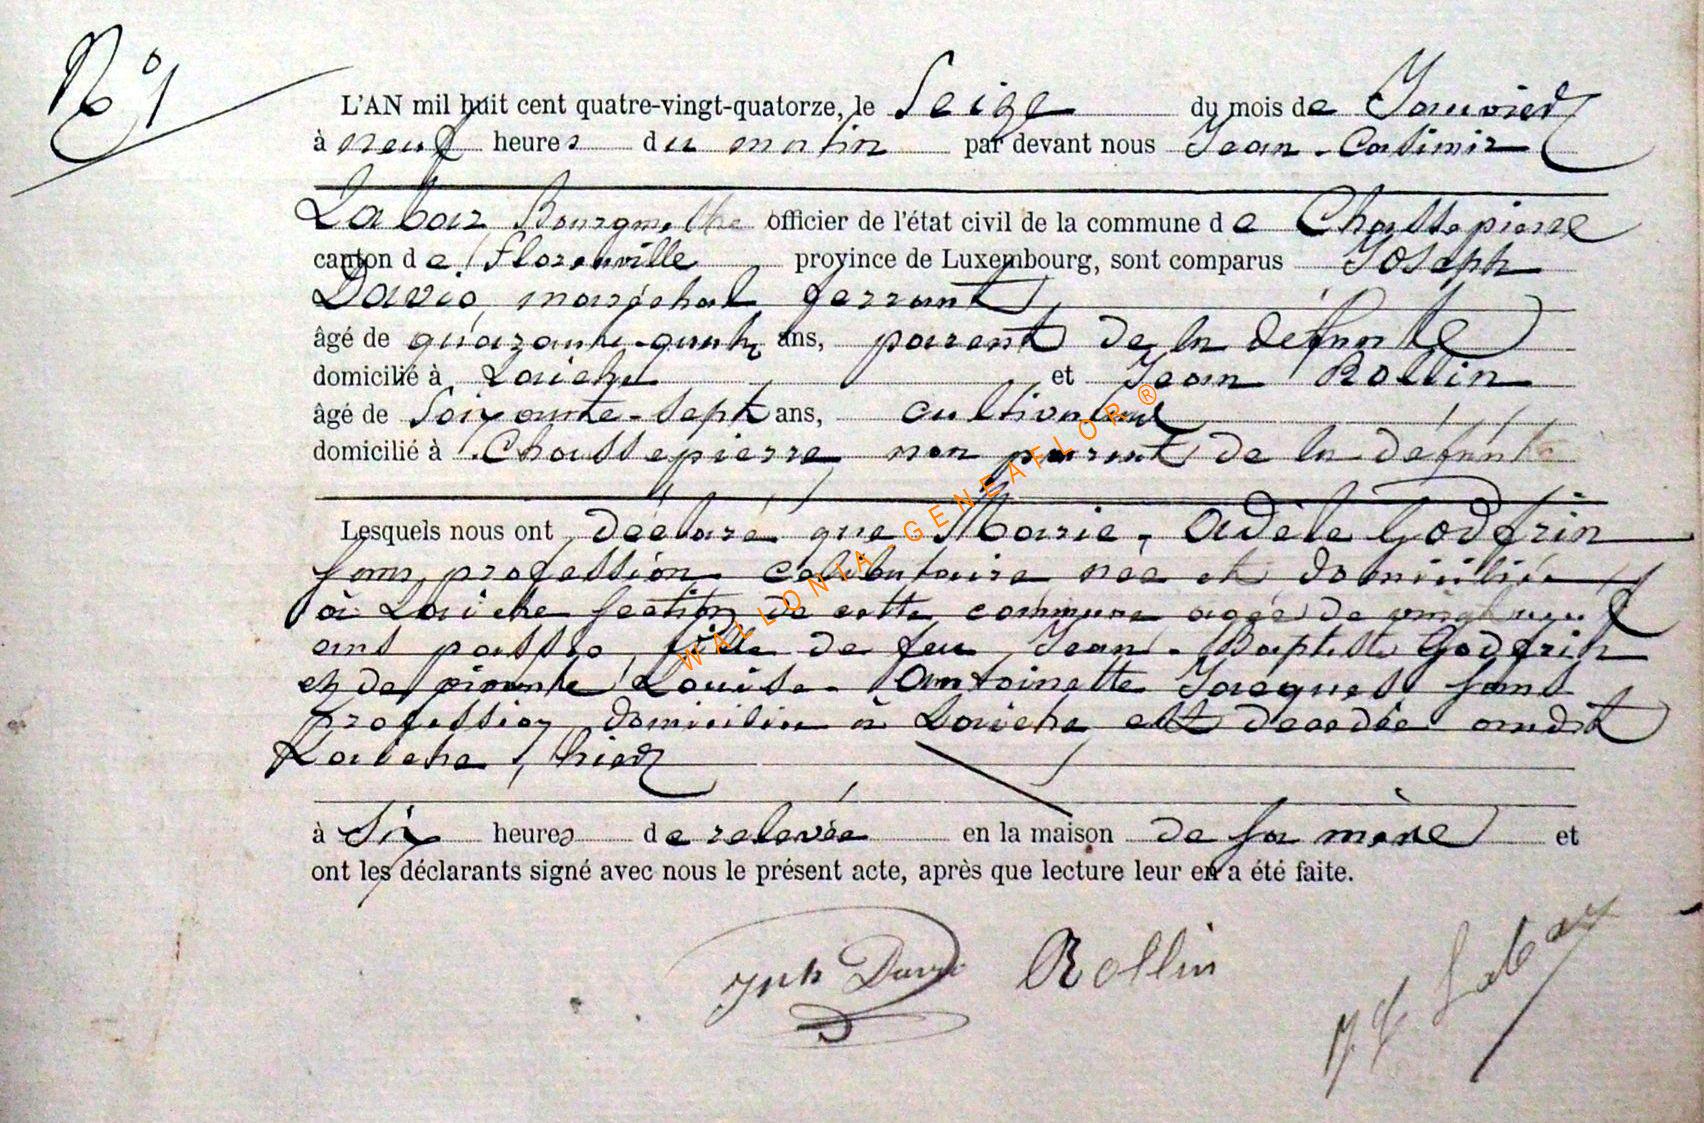 N° 1
L'AN mil huit cent quatre-vingt-quatorze, le Seize du mois de Janvier
à neuf heures du matin par devant nous Jean-Casimir
Labar Bourgmestre officier de l'état civil de la commune de Chassepierre
canton de Florenville province de Luxembourg, sont comparus Joseph
David, maréchal ferrant
âgé de quarante-quatre ans, parent de la défunte
domicilié à Laiche et Jean Rollin
âgé de Soixante-Sept ans, cultivateur
domicilié à Chassepierre non parent de la défunte
Lesquels nous ont déclaré que Marie-Adèle Godfrin
sans profession célibataire née et domiciliée
à Laiche section de cette commune agée de vingt neuf
ans passés, fille de feu Jean-Baptiste Godfrin
et de vivante Louise-Antoinette Jacques sans
profession domiciliée à Laiche est décédée audit
Laiche, hier
à Six heures de relevée en la maison de sa mère et
ont les déclarants signé avec nous le présent acte, après que lecture leur en a été faite.
Jph David Rollin J. C. Labar
WALLONIA-GENEAFLOR®